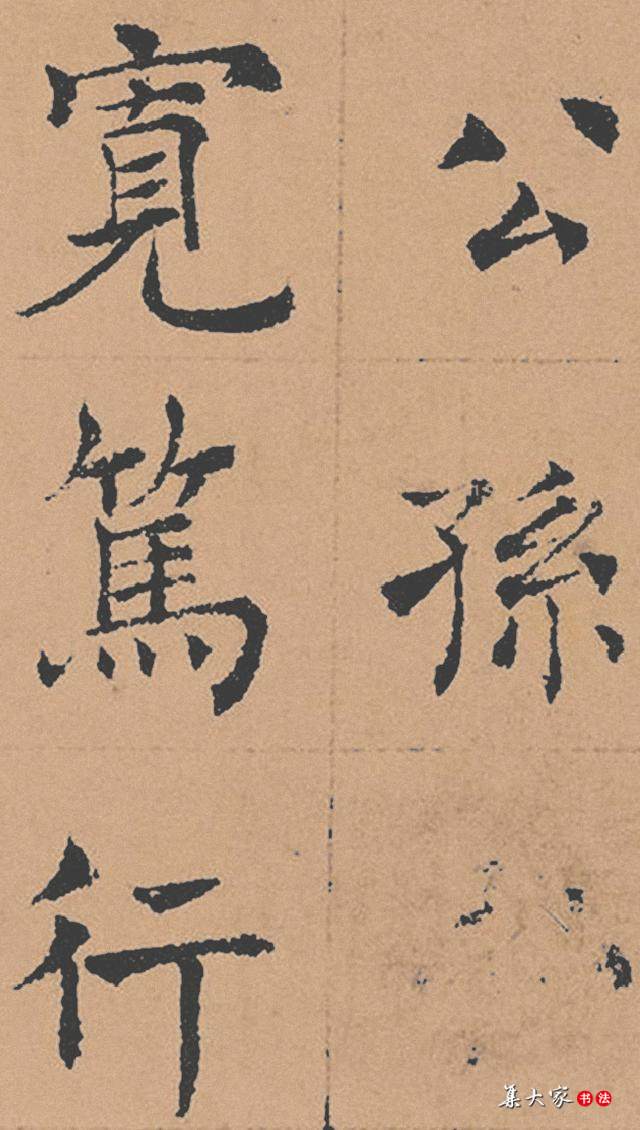 公孫
寬篤行
集大家书法